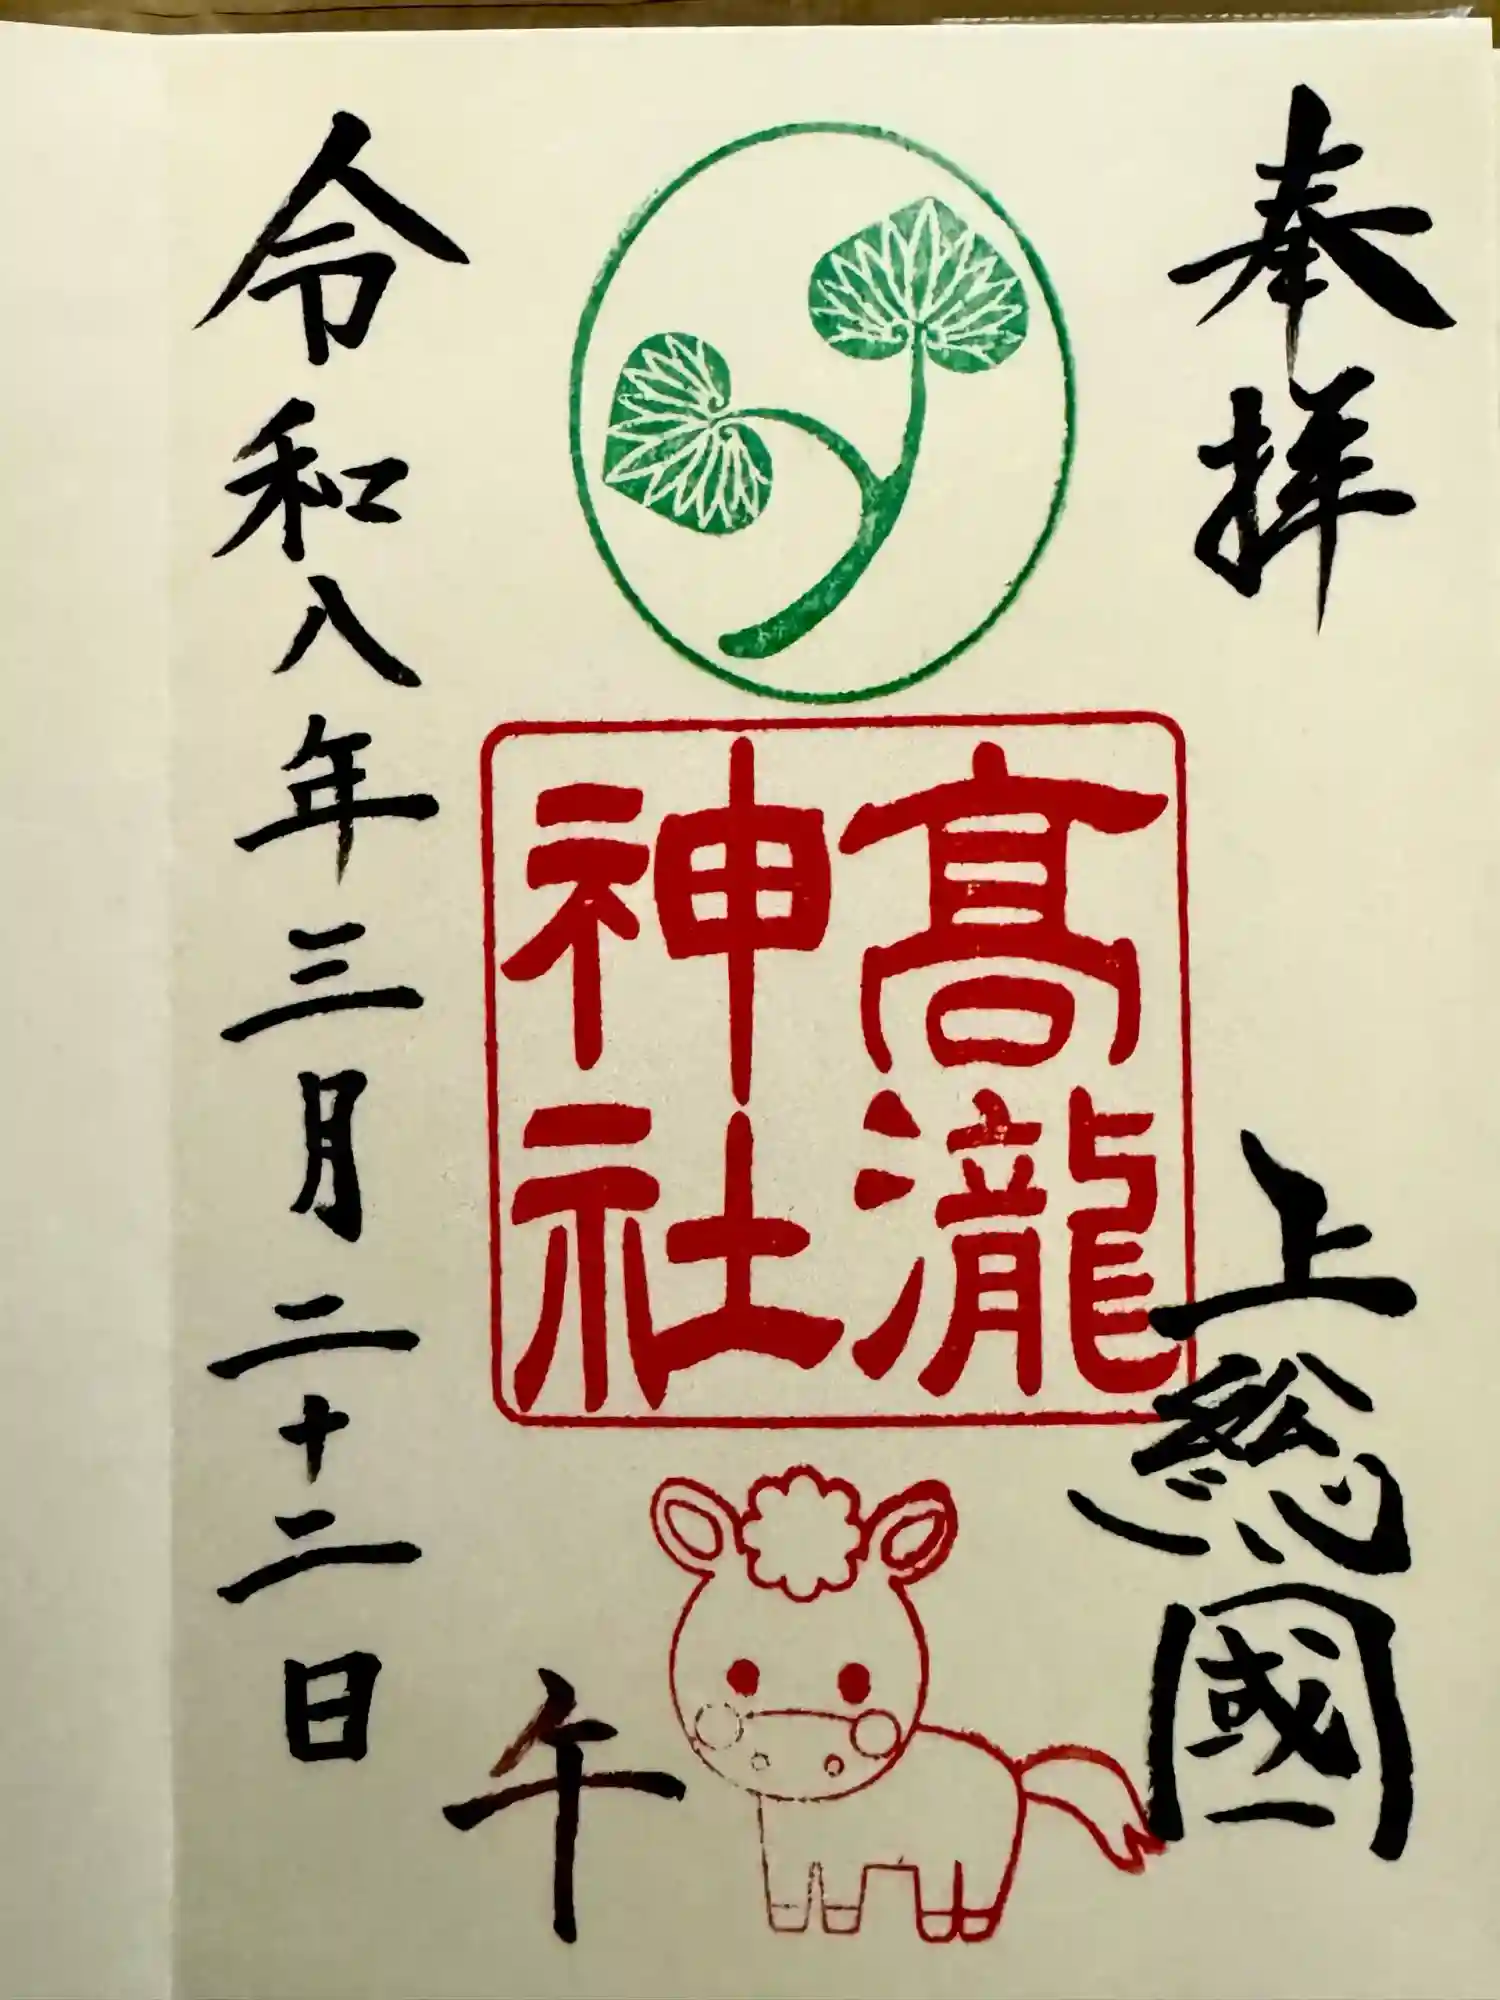 奉拝
上総國
高瀧
神社
午
令和八年三月二十二日